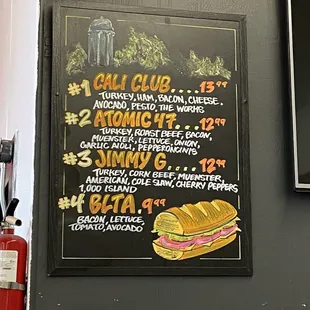 #1 CALI CLUB.... 13.99
TURKEY, HAM, BACON, CHEESE,
AVOCADO, PESTO, THE WORKS
#2 ATOMIC 47... 12.99
TURKEY, ROAST BEEF, BACON,
MUENSTER, LETTUCE, ONION,
GARLIC AIOLI, PEPPERONCINI'S
#3 JIMMY G.... 12.99
TURKEY, CORN BEEF, MUENSTER,
AMERICAN, COLE SLAW, CHERRY PEPPERS
1,000 ISLAND
#4 BLTA. 9.99
BACON, LETTUCE,
TOMATO, AVOCADO